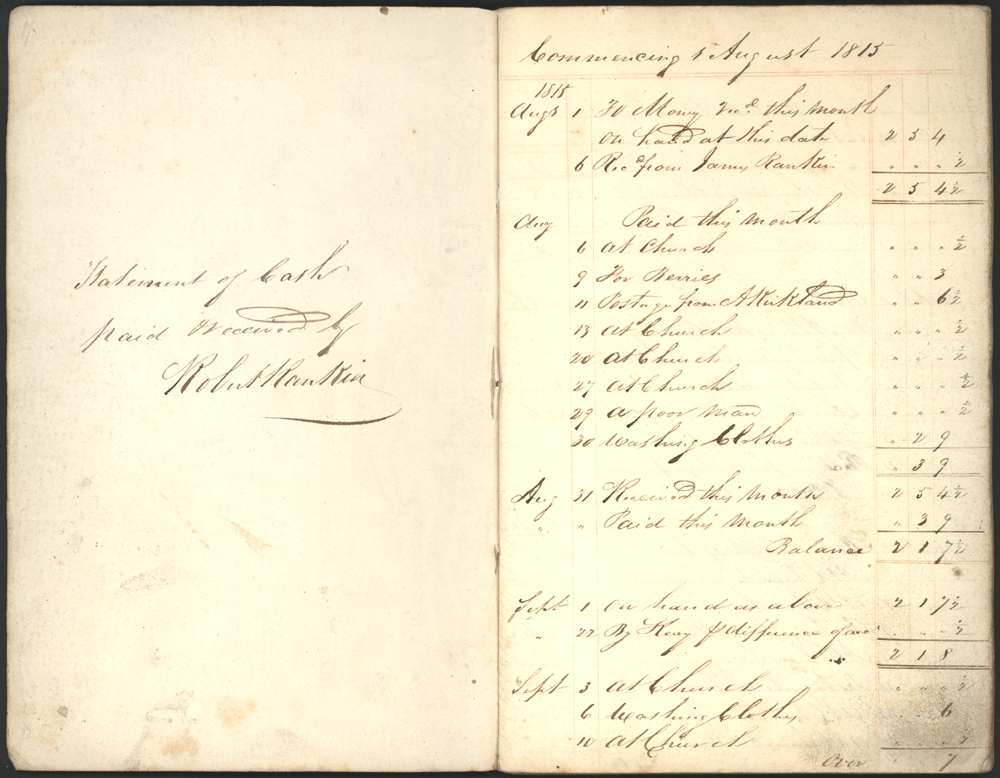 Statement of Cash
paid & received by
Robert Rankin
Commencing 1 August 1815
1815
Augt 1 To Money recd. this month
on hand at this date 2 5 4
6 Recd from James Rankin " " " ½
2 5 4½
Aug Paid this month
6 at Church " " " ½
9 For Berries " " 3
11 Postage from A Kirkland " " 6½
13 at Church " " " ½
20 at Church " " " ½
27 at Church " " " ½
29 a poor man " " " ½
30 Washing Clothes " 2 9
" 3 9
Aug 31 Received this month 2 5 4½
" " Paid this month " 3 9
Balance 2 1 7½
Sept 1 on hand as above 2 1 7½
" 22 By Keay difference of " " " ½
2 1 8
Sept 3 at Church " " " ½
6 Washing Clothes " " 6
10 at Church " " " ½
Over " " 7